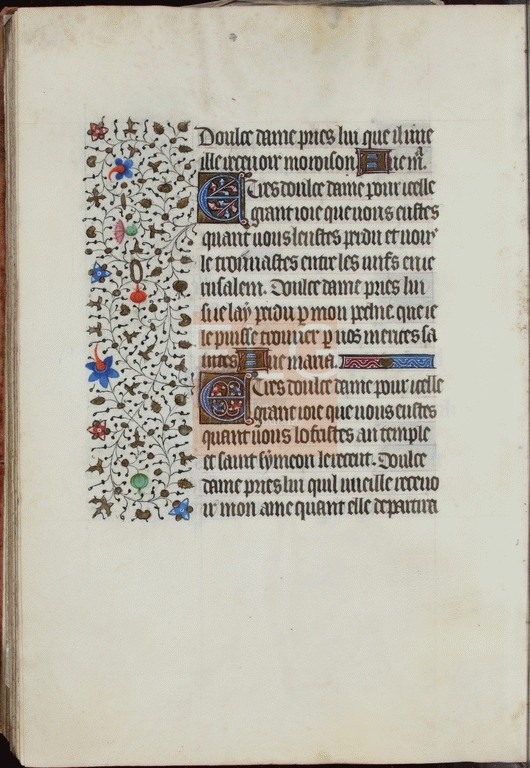 Doulce dame pries lui que il vue
ille recevoir moroison Aue ma.
E Tres doulce dame pour icelle
grant ioie que vous eustes
quant vous leustes perdu et vous
le trouuastes entre les iuifs en ie
rusalem. Doulce dame pries lui
sue lay perdu p mon pechie que ie
le puisse trouuer p vos merites sa
intes Aue maria.
E Tres doulce dame pour icelle
grant ioie que vous eustes
quant vous lofristes au temple
et saint symeon le recent. Doulce
dame pries lui quil vueille recevo
ir mon ame quant elle departira